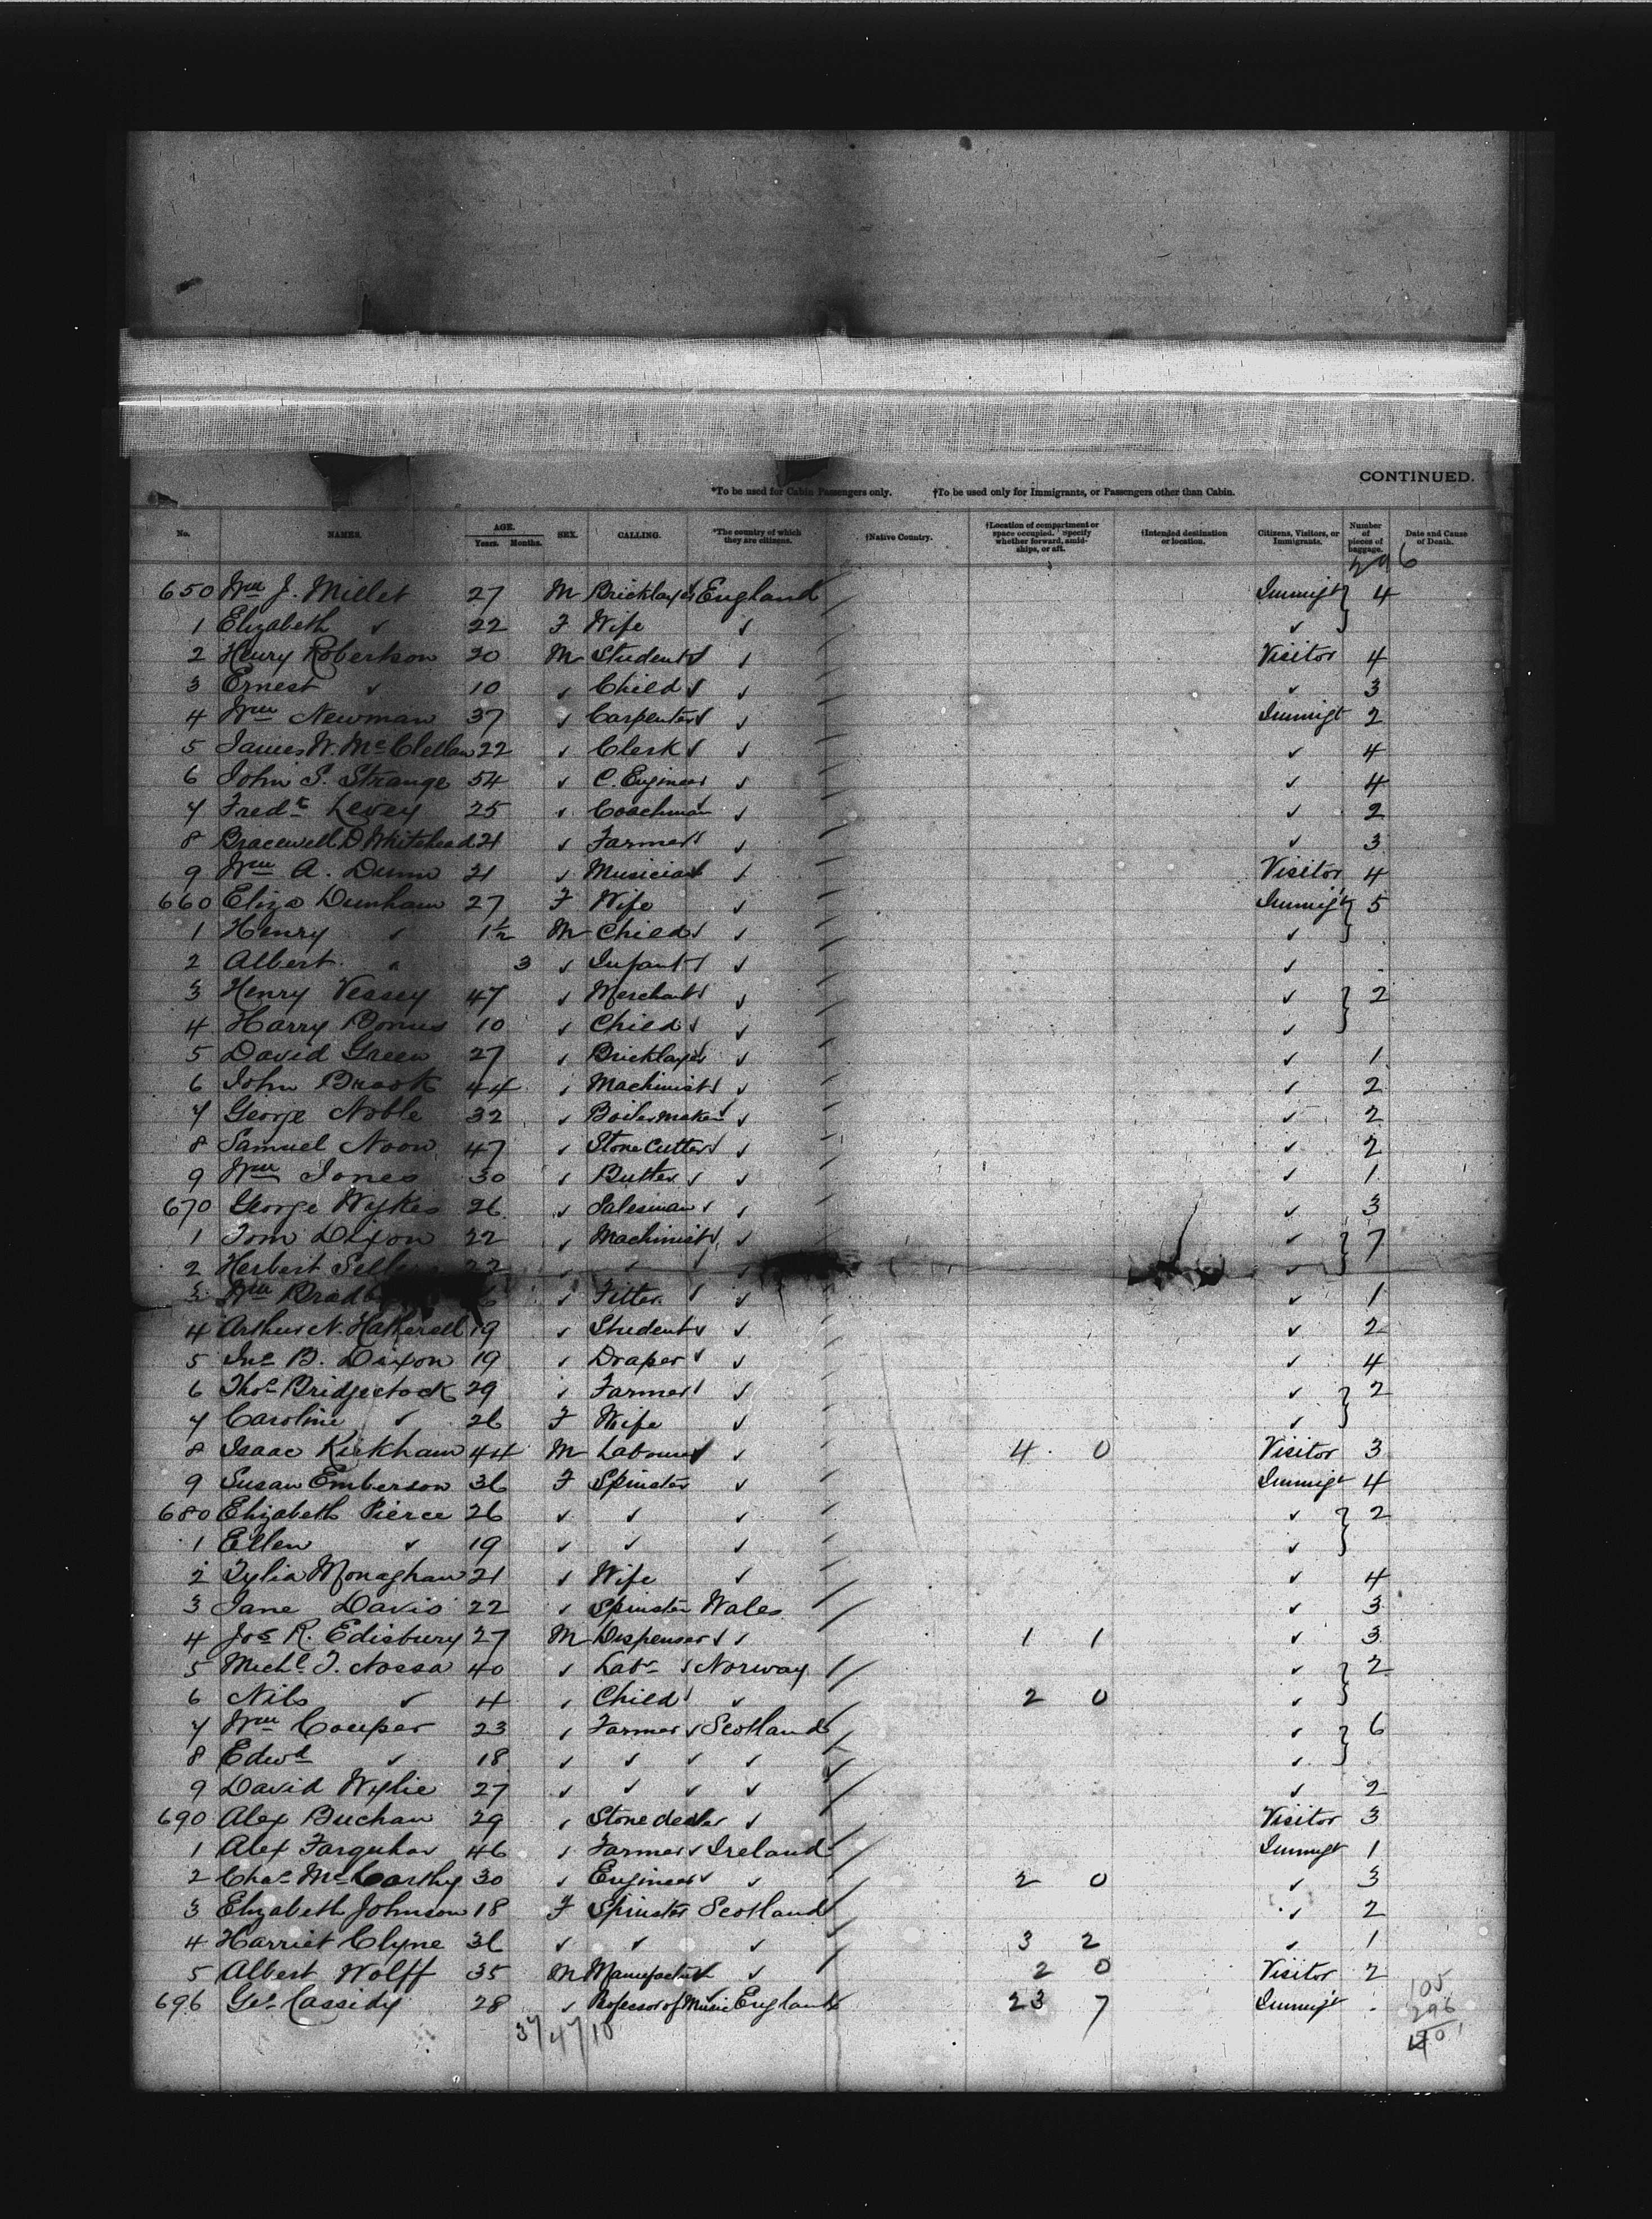 CONTINUED.
*To be used for Cabin Passengers only. †To be used only for Immigrants, or Passengers other than Cabin.
No. NAMES. AGE. Years. Months. SEX. CALLING. *The country of which they are citizens. †Native Country. †Location of compartment or space occupied. Specify whether forward, amidships, or aft. †Intended destination or location. Citizens, Visitors, or Immigrants. Number of pieces of baggage. Date and Cause of Death.
296
650 Wm J. Millet 27 M Bricklayer England Immigt 4
1 Elizabeth ✓ 22 F Wife ✓ ✓
2 Henry Robertson 20 M Student ✓ Visitor 4
3 Ernest ✓ 10 ✓ Child ✓ ✓ 3
4 Wm Newman 37 ✓ Carpenter ✓ Immigt 2
5 James W. McClellan 22 ✓ Clerk ✓ ✓ 4
6 John S. Strange 54 ✓ C. Engineer ✓ ✓ 4
7 Fredk Levey 25 ✓ Coachman ✓ ✓ 2
8 Bracewell D Whitehead 21 ✓ Farmer ✓ ✓ 3
9 Wm A. Dunn 21 ✓ Musician ✓ Visitor 4
660 Eliza Dunham 27 F Wife ✓ Immigt 5
1 Henry ✓ 1½ M Child ✓ ✓
2 Albert " 3 ✓ Infant ✓ ✓
3 Henry Vessey 47 ✓ Merchant ✓ ✓ 2
4 Harry Bonus 10 ✓ Child ✓ ✓
5 David Green 27 ✓ Bricklayer ✓ ✓ 1
6 John Brook 44 ✓ Machinist ✓ ✓ 2
7 George Noble 32 ✓ Boilermaker ✓ ✓ 2
8 Samuel Noon 47 ✓ Stone Cutter ✓ ✓ 2
9 Wm Jones 30 ✓ Butler ✓ ✓ 1
670 George Wykes 26 ✓ Salesman ✓ ✓ 3
1 Tom Dixon 22 ✓ Machinist ✓ ✓ 7
2 Herbert 22 ✓ ✓ ✓ ✓
3 Wm ✓ Fitter ✓ ✓ 1
4 Arthur N. Hathersell 19 ✓ Student ✓ ✓ 2
5 Jno B. Dixon 19 ✓ Draper ✓ ✓ 4
6 Thos Bridgestock 29 ✓ Farmer ✓ ✓ 2
7 Caroline ✓ 26 F Wife ✓ ✓
8 Isaac Kirkham 44 M Labourer ✓ 4 0 Visitor 3
9 Susan Emberson 36 F Spinster ✓ Immigt 4
680 Elizabeth Pierce 26 ✓ ✓ ✓ ✓ 2
1 Ellen ✓ 19 ✓ ✓ ✓ ✓
2 Tylia Monaghan 21 ✓ Wife ✓ ✓ 4
3 Jane Davis 22 ✓ Spinster Wales ✓ 3
4 Jos R. Edisbury 27 M Dispenser ✓ 1 1 ✓ 3
5 Michl T. Nossa 40 ✓ Labr Norway ✓ 2
6 Nils ✓ 4 ✓ Child ✓ 2 0 ✓
7 Wm Couper 23 ✓ Farmer Scotland ✓ 6
8 Edwd ✓ 18 ✓ ✓ ✓ ✓
9 David Wylie 27 ✓ ✓ ✓ ✓ 2
690 Alex Buchan 29 ✓ Stone dealer ✓ Visitor 3
1 Alex Farquhar 46 ✓ Farmer Ireland Immigt 1
2 Chas McCarthy 30 ✓ Engineer ✓ 2 0 ✓ 3
3 Elizabeth Johnson 18 F Spinster Scotland ✓ 2
4 Harriet Clyne 36 ✓ ✓ ✓ 3 2 ✓ 1
5 Albert Wolff 35 M Manufacturer ✓ 2 0 Visitor 2
696 Geo Cassidy 28 ✓ Professor of Music England 23 7 Immigt
37/47/10
105
296
401